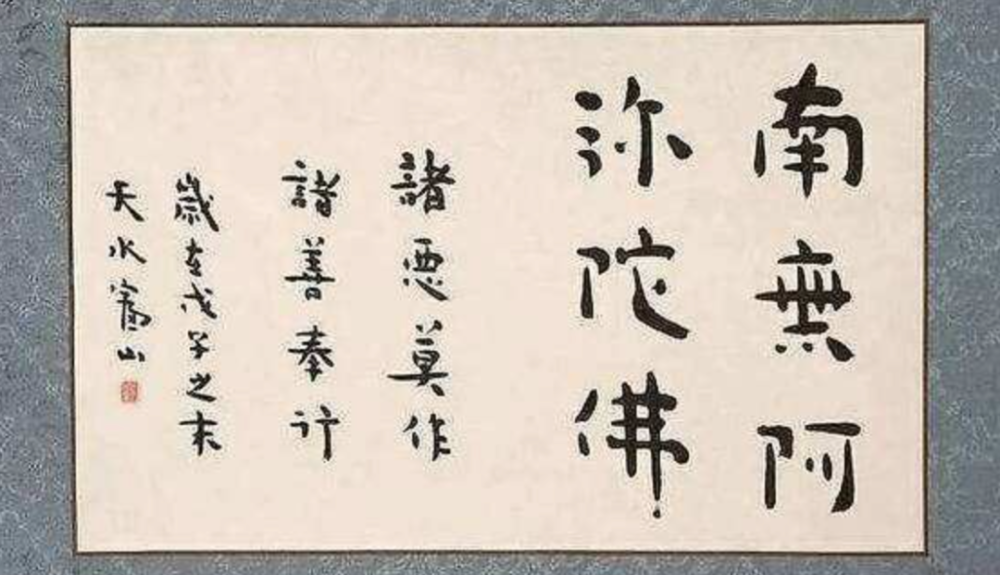 南無阿
弥陀佛
諸惡莫作
諸善奉行
歲在戊子之末
天水寫山